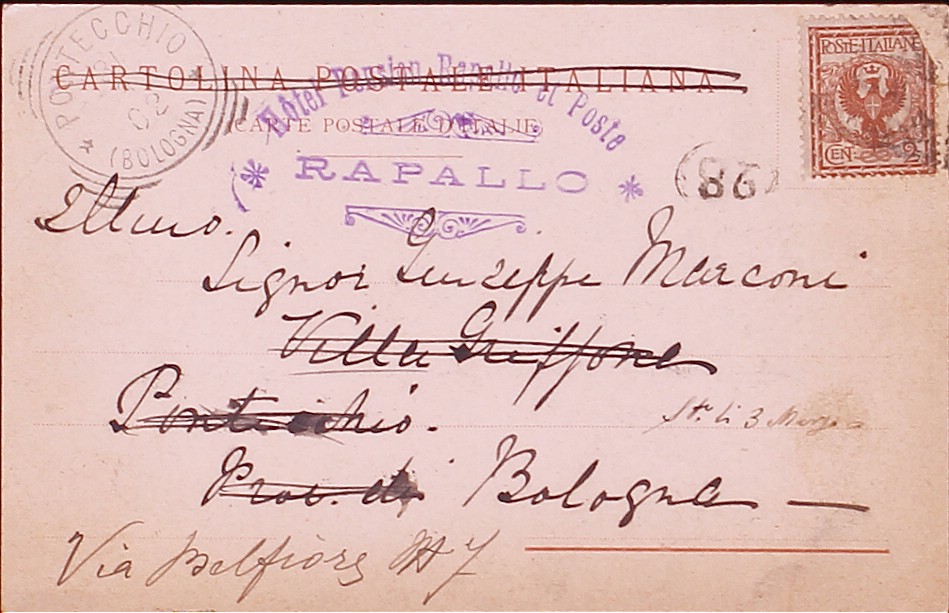 PONTECCHIO
02
(BOLOGNA)
CARTOLINA POSTALE ITALIANA
(CARTE POSTALE D'ITALIE)
Hôtel Pension Rapallo et Poste
RAPALLO
POSTE ITALIANE
CEN 2
86
Illmo.
Signor Giuseppe Marconi
Villa Griffone
Pontecchio.
3 Marzo
Prov. di Bologna
Via Belfiore N 7